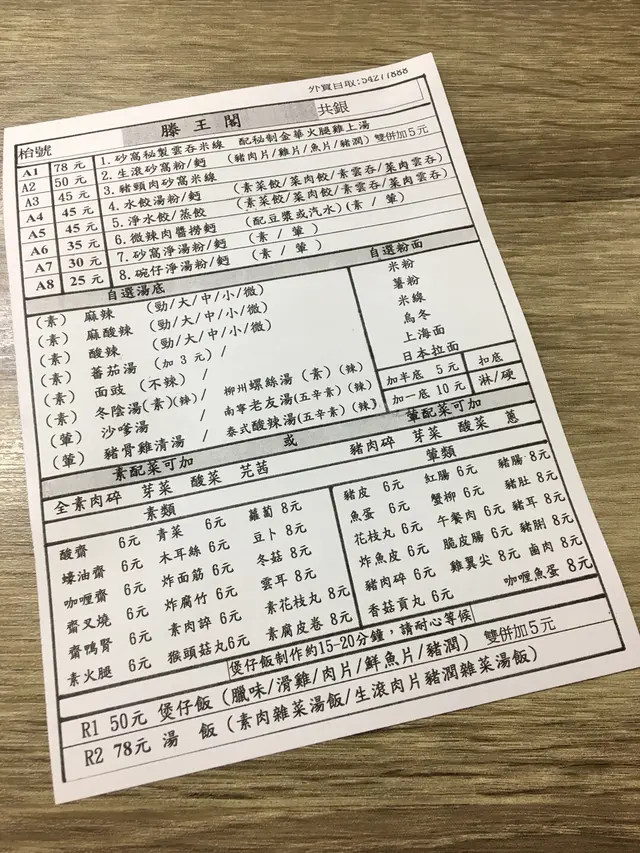 外賣自取:54277888
滕王閣 共銀
枱號
A1 78元 1. 砂窩秘製雲吞米線 配秘制金華火腿雞上湯
A2 50元 2. 生滾砂窩粉/麪 (豬肉片/雞片/魚片/豬潤) 雙併加5元
A3 45元 3. 豬頸肉砂窩米線
A4 45元 4. 水餃湯粉/麪 (素菜餃/菜肉餃/素雲吞/菜肉雲吞)
A5 45元 5. 淨水餃/蒸餃 (素菜餃/菜肉餃/素雲吞/菜肉雲吞)
A6 35元 6. 微辣肉醬撈麪 (配豆漿或汽水)(素 / 葷)
A7 30元 7. 砂窩淨湯粉/麪 (素 / 葷)
A8 25元 8. 碗仔淨湯粉/麪 (素 / 葷)
自選湯底 自選粉面
(素) 麻辣 (勁/大/中/小/微) 米粉
(素) 麻酸辣 (勁/大/中/小/微) 薯粉
(素) 酸辣 (勁/大/中/小/微) 米線
(素) 蕃茄湯 (加3元) / 烏冬
(素) 面豉 (不辣) / 上海面
(素) 冬陰湯(素)(辣)/ 柳州螺絲湯 (素)(辣) 日本拉面
(葷) 沙嗲湯 / 南寧老友湯(五辛素)(辣) 加半底 5元 扣底
(葷) 豬骨雞清湯 / 泰式酸辣湯(五辛素)(辣) 加一底 10元 淋/硬
素配菜可加 或 葷配菜可加
全素肉碎 芽菜 酸菜 芫茜 豬肉碎 芽菜 酸菜 蔥
素類 葷類
酸齋 6元 青菜 6元 蘿蔔 8元 豬皮 6元 紅腸 6元 豬腸 8元
蠔油齋 6元 木耳絲 6元 豆卜 8元 魚蛋 6元 蟹柳 6元 豬肚 8元
咖喱齋 6元 炸面筋 6元 冬菇 8元 花枝丸 6元 午餐肉 6元 豬耳 8元
齋叉燒 6元 炸腐竹 6元 雲耳 8元 炸魚皮 6元 脆皮腸 6元 豬脷 8元
齋鴨腎 6元 素肉碎 6元 素花枝丸 8元 豬肉碎 6元 雞翼尖 8元 鹵肉 8元
素火腿 6元 猴頭菇丸6元 素腐皮卷 8元 香菇貢丸 6元 咖喱魚蛋 8元
煲仔飯制作約15-20分鐘，請耐心等候
R1 50元 煲仔飯 (臘味/滑雞/肉片/鮮魚片/豬潤) 雙併加5元
R2 78元 湯 飯 (素肉雜菜湯飯/生滾肉片豬潤雜菜湯飯)